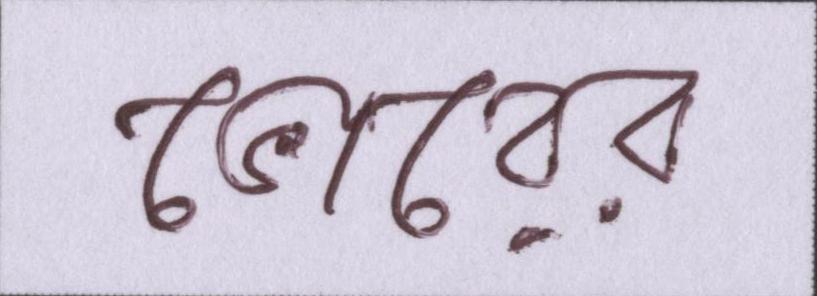 ভোরের